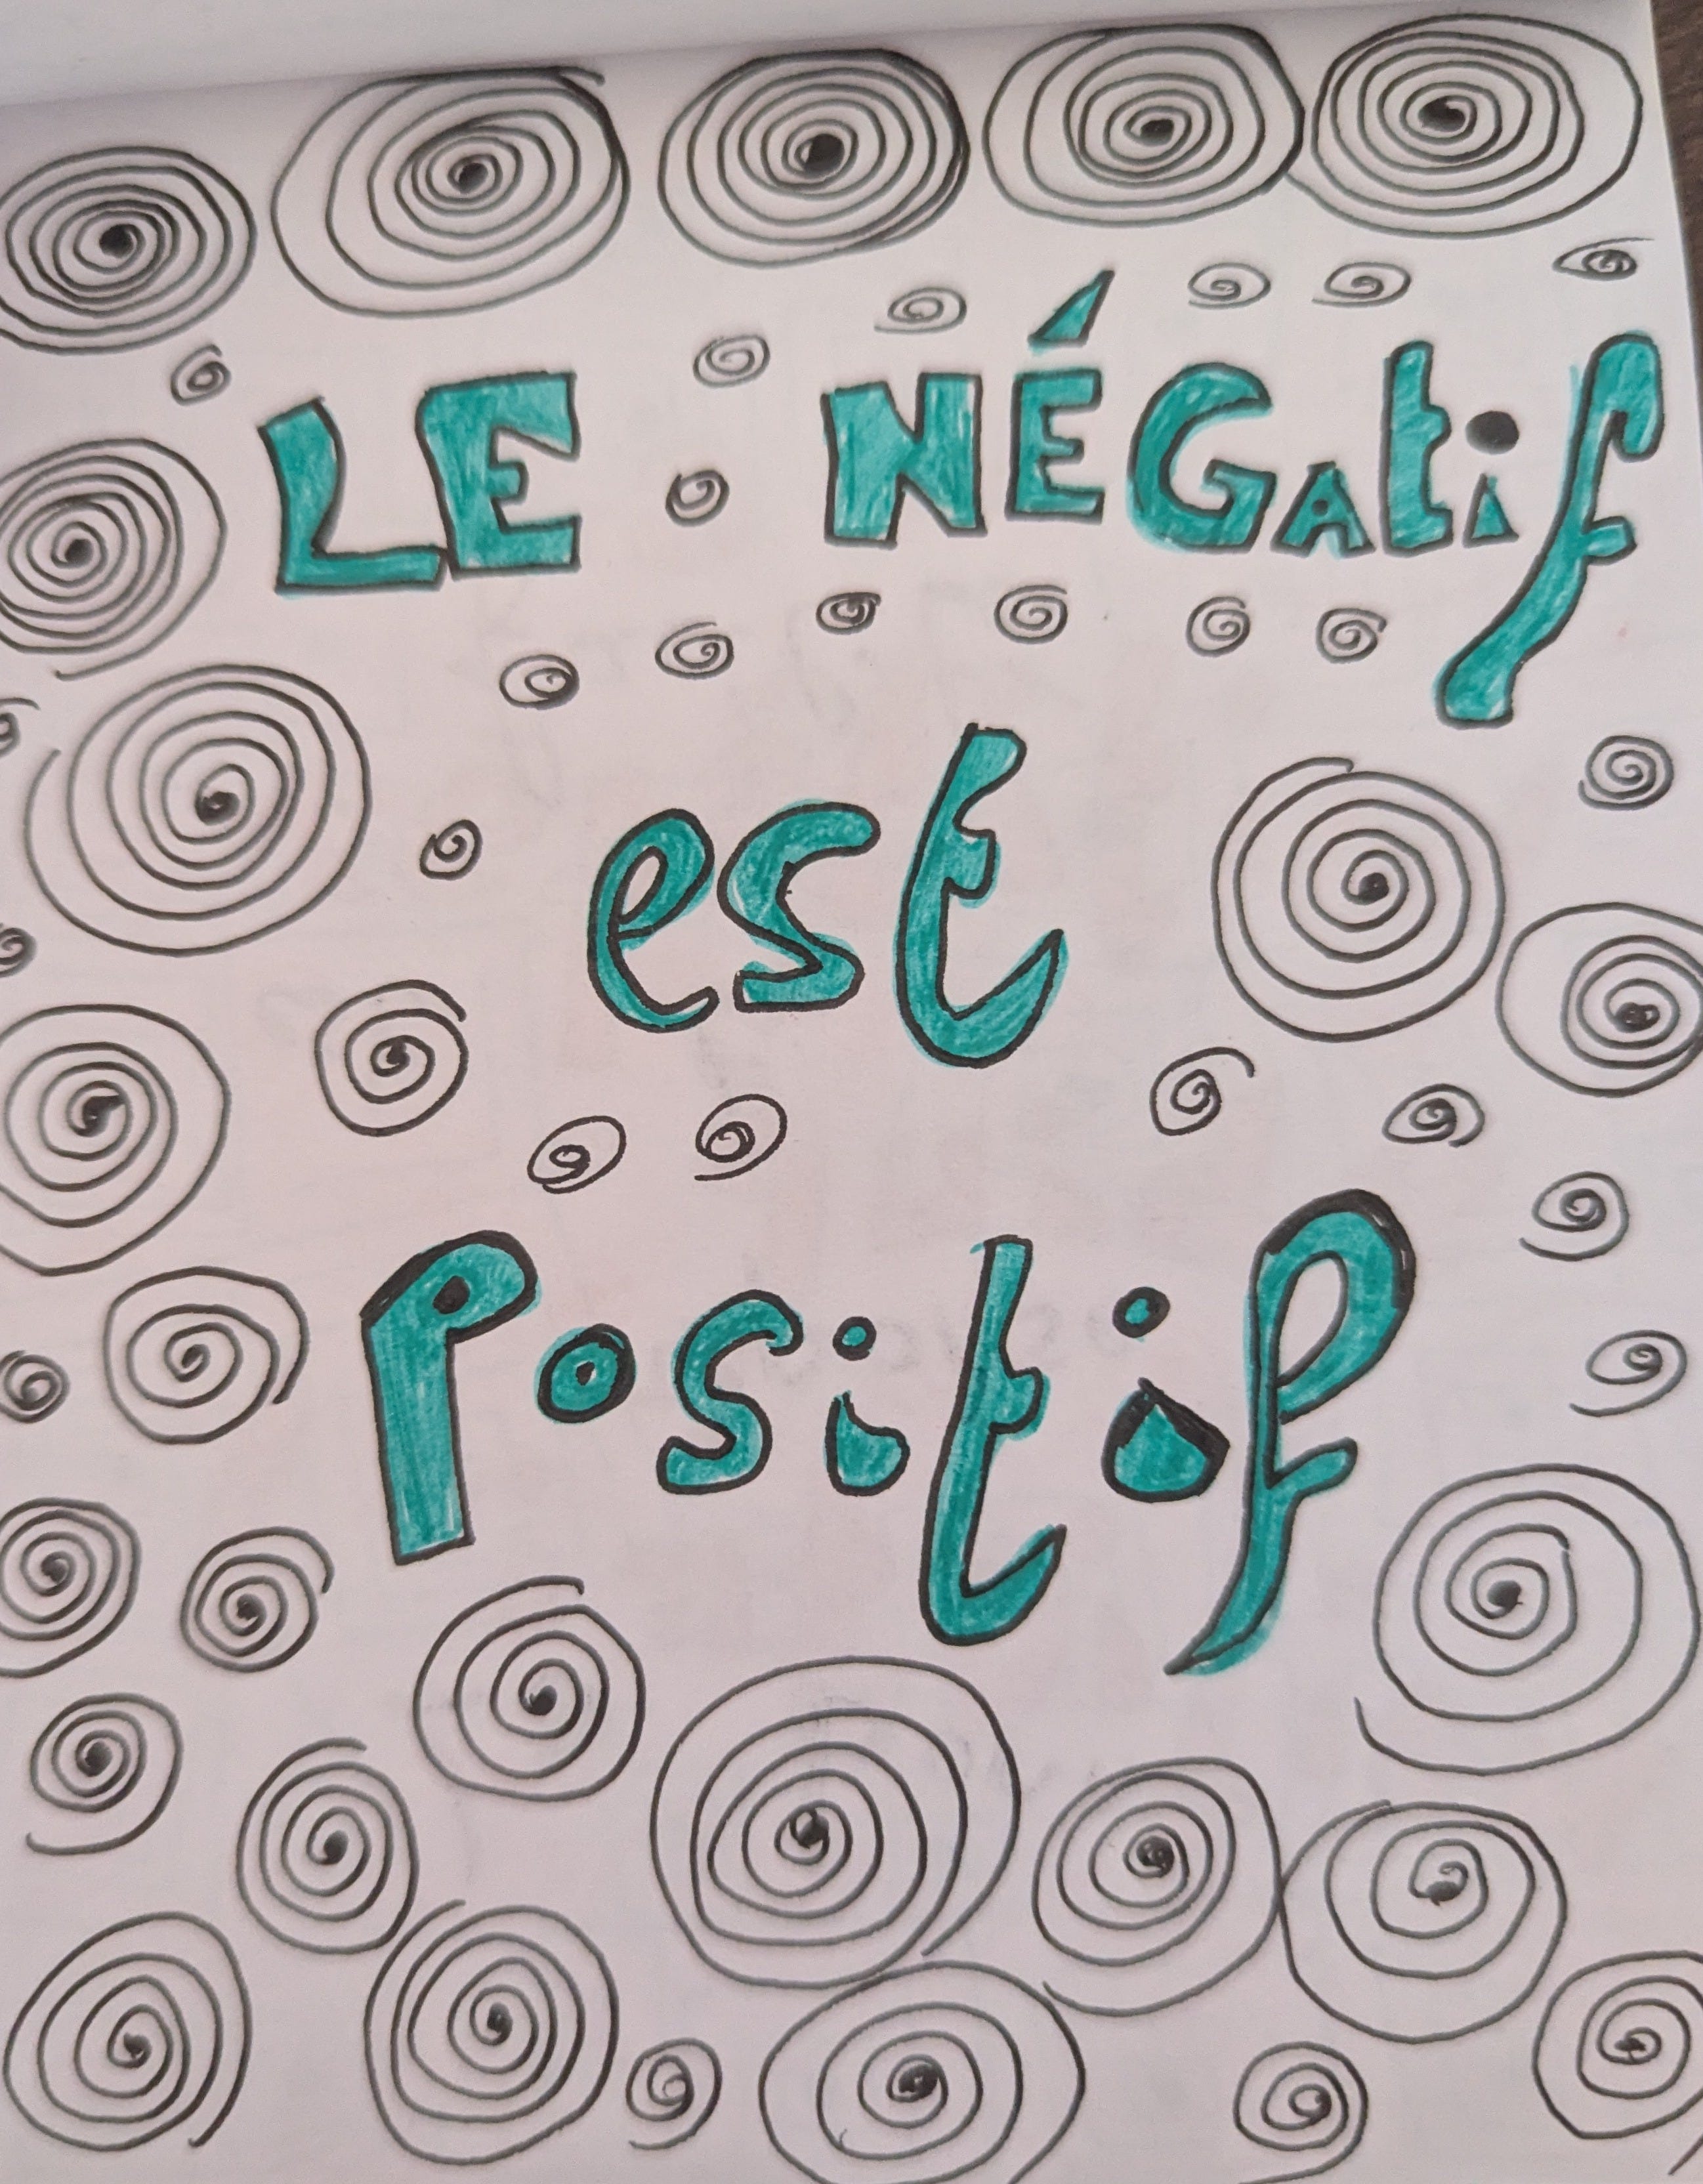 LE NÉGatif
est
Positif